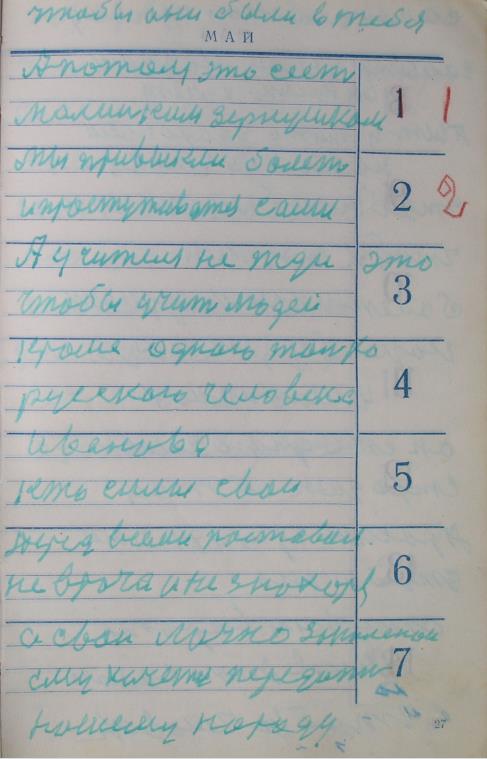 чтобы они были в тебя
МАЙ
А потом это сеет
малинким зернушком
1 1
мы привыкли болеть
и простуживатся сами
2 2
А учителя не жди это
чтобы учит людей
3
кроме одного только
русского человека
4
Иванова
кто силы свои
5
перед всеми поставил
не врача и не знохоря
6
а свои лично закаленои
ему хочется передать
7
нашему народу
27